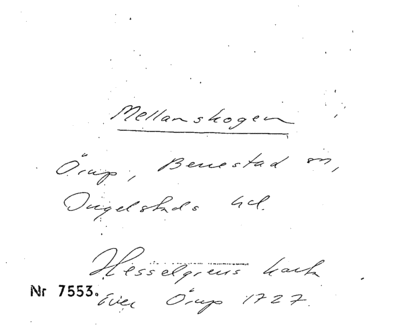 Mellanskogen
Örup, Benestad sn,
Ingelstads hd.
Hesselgrens karta
över Örup 1727.
Nr 7553.